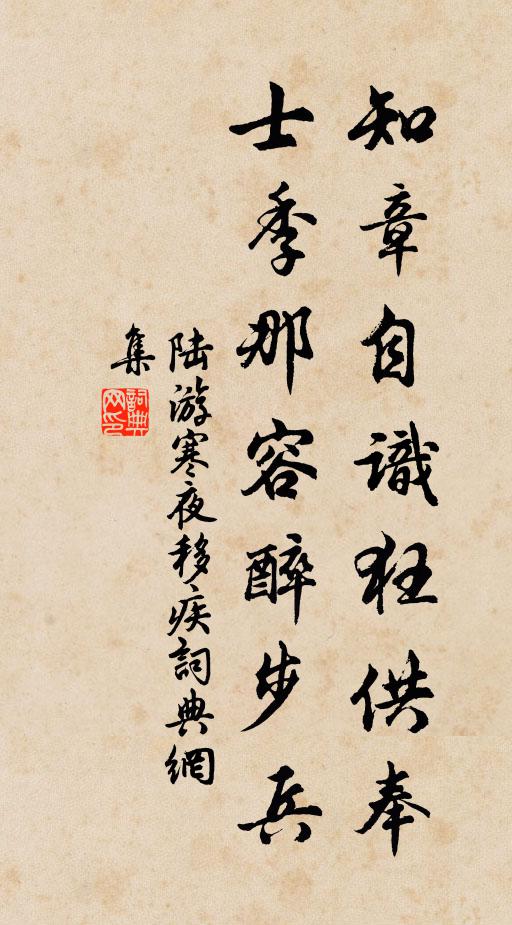 知章自識狂供奉
士季那容醉步兵
陸游寒夜移疾詞典網
集
詞典
网印